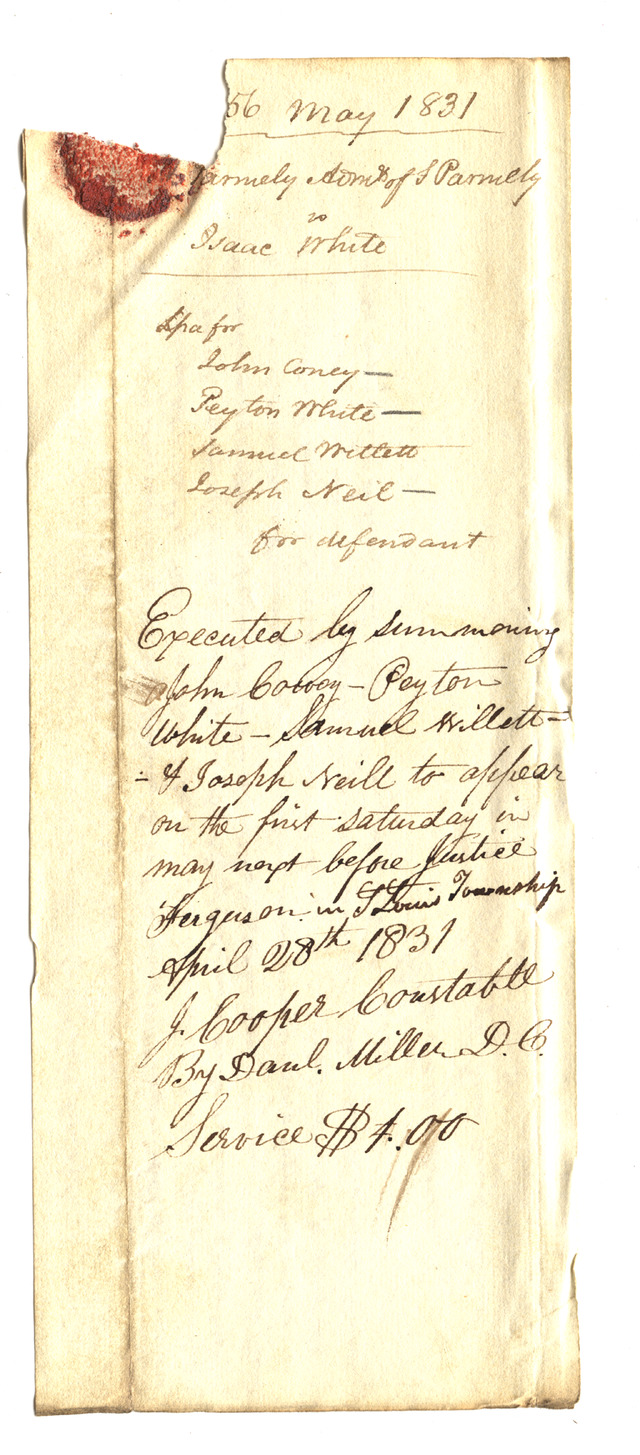 56 May 1831
Parmely Admr of S Parmely
vs
Isaac White
Spa for
John Coney —
Peyton White —
Samuel Willett
Joseph Neil —
for defendant
Executed by summoning
John Cowey – Peyton
White – Samuel Willett –
& Joseph Neill to appear
on the first saturday in
may next before Justice
Ferguson in St Louis Township
April 28th 1831
J. Cooper Constable
By Danl. Miller D. C.
Service $4.00